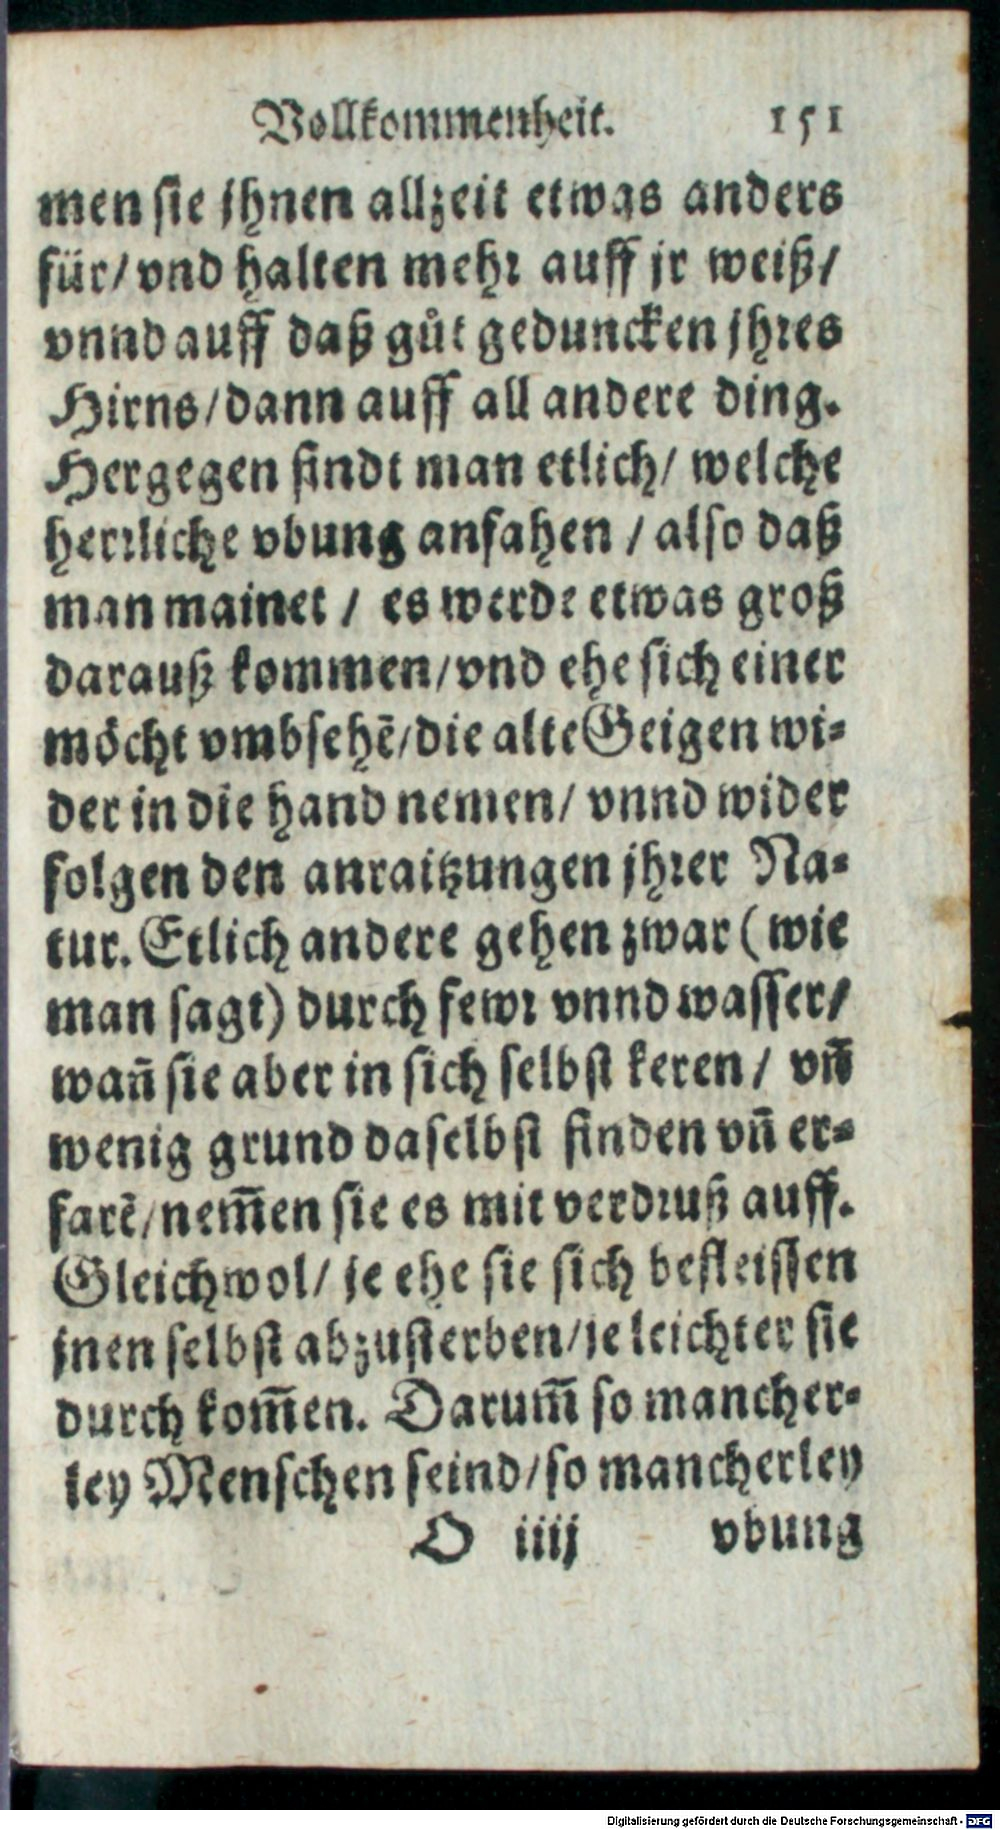 Vollkommenheit. 151
men sie jhnen allzeit etwas anders
für/ vnd halten mehr auff jr weiß/
vnnd auff daß gůt geduncken jhres
Hirns/ dann auff all andere ding.
Hergegen findt man etlich/ welche
herrliche vbung anfahen / also daß
man mainet / es werde etwas groß
darauß kommen/ vnd ehe sich einer
möcht vmbsehē/ die alte Geigen wi-
der in die hand nemen/ vnnd wider
folgen den anraitzungen jhrer Na-
tur. Etlich andere gehen zwar (wie
man sagt) durch fewr vnnd wasser/
wañ sie aber in sich selbst keren/ vñ
wenig grund daselbst finden vñ er-
farē/ nem̄en sie es mit verdruß auff.
Gleichwol/ je ehe sie sich befleissen
jnen selbst abzusterben/ je leichter sie
durch kom̄en. Darum̄ so mancher-
ley Menschen seind/ so mancherley
O iiij vbung
Digitalisierung gefördert durch die Deutsche Forschungsgemeinschaft - DFG